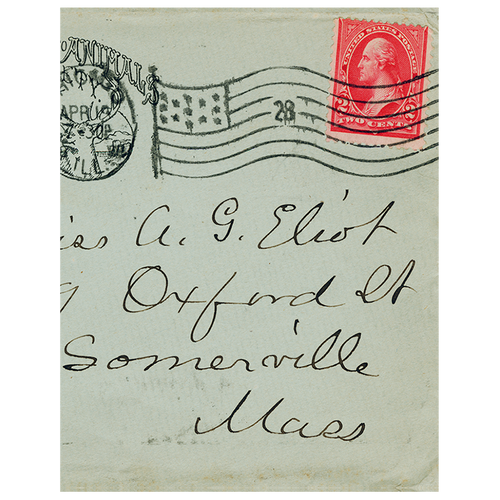 ANIMALS
APR
7-30P
ILL
28
UNITED STATES POSTAGE
2 2
TWO CENTS
iss A. G. Eliot
9 Oxford St
Somerville
Mass